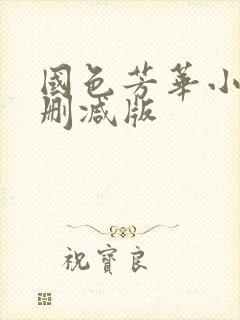 國色芳華小
刪减版
祝寶良